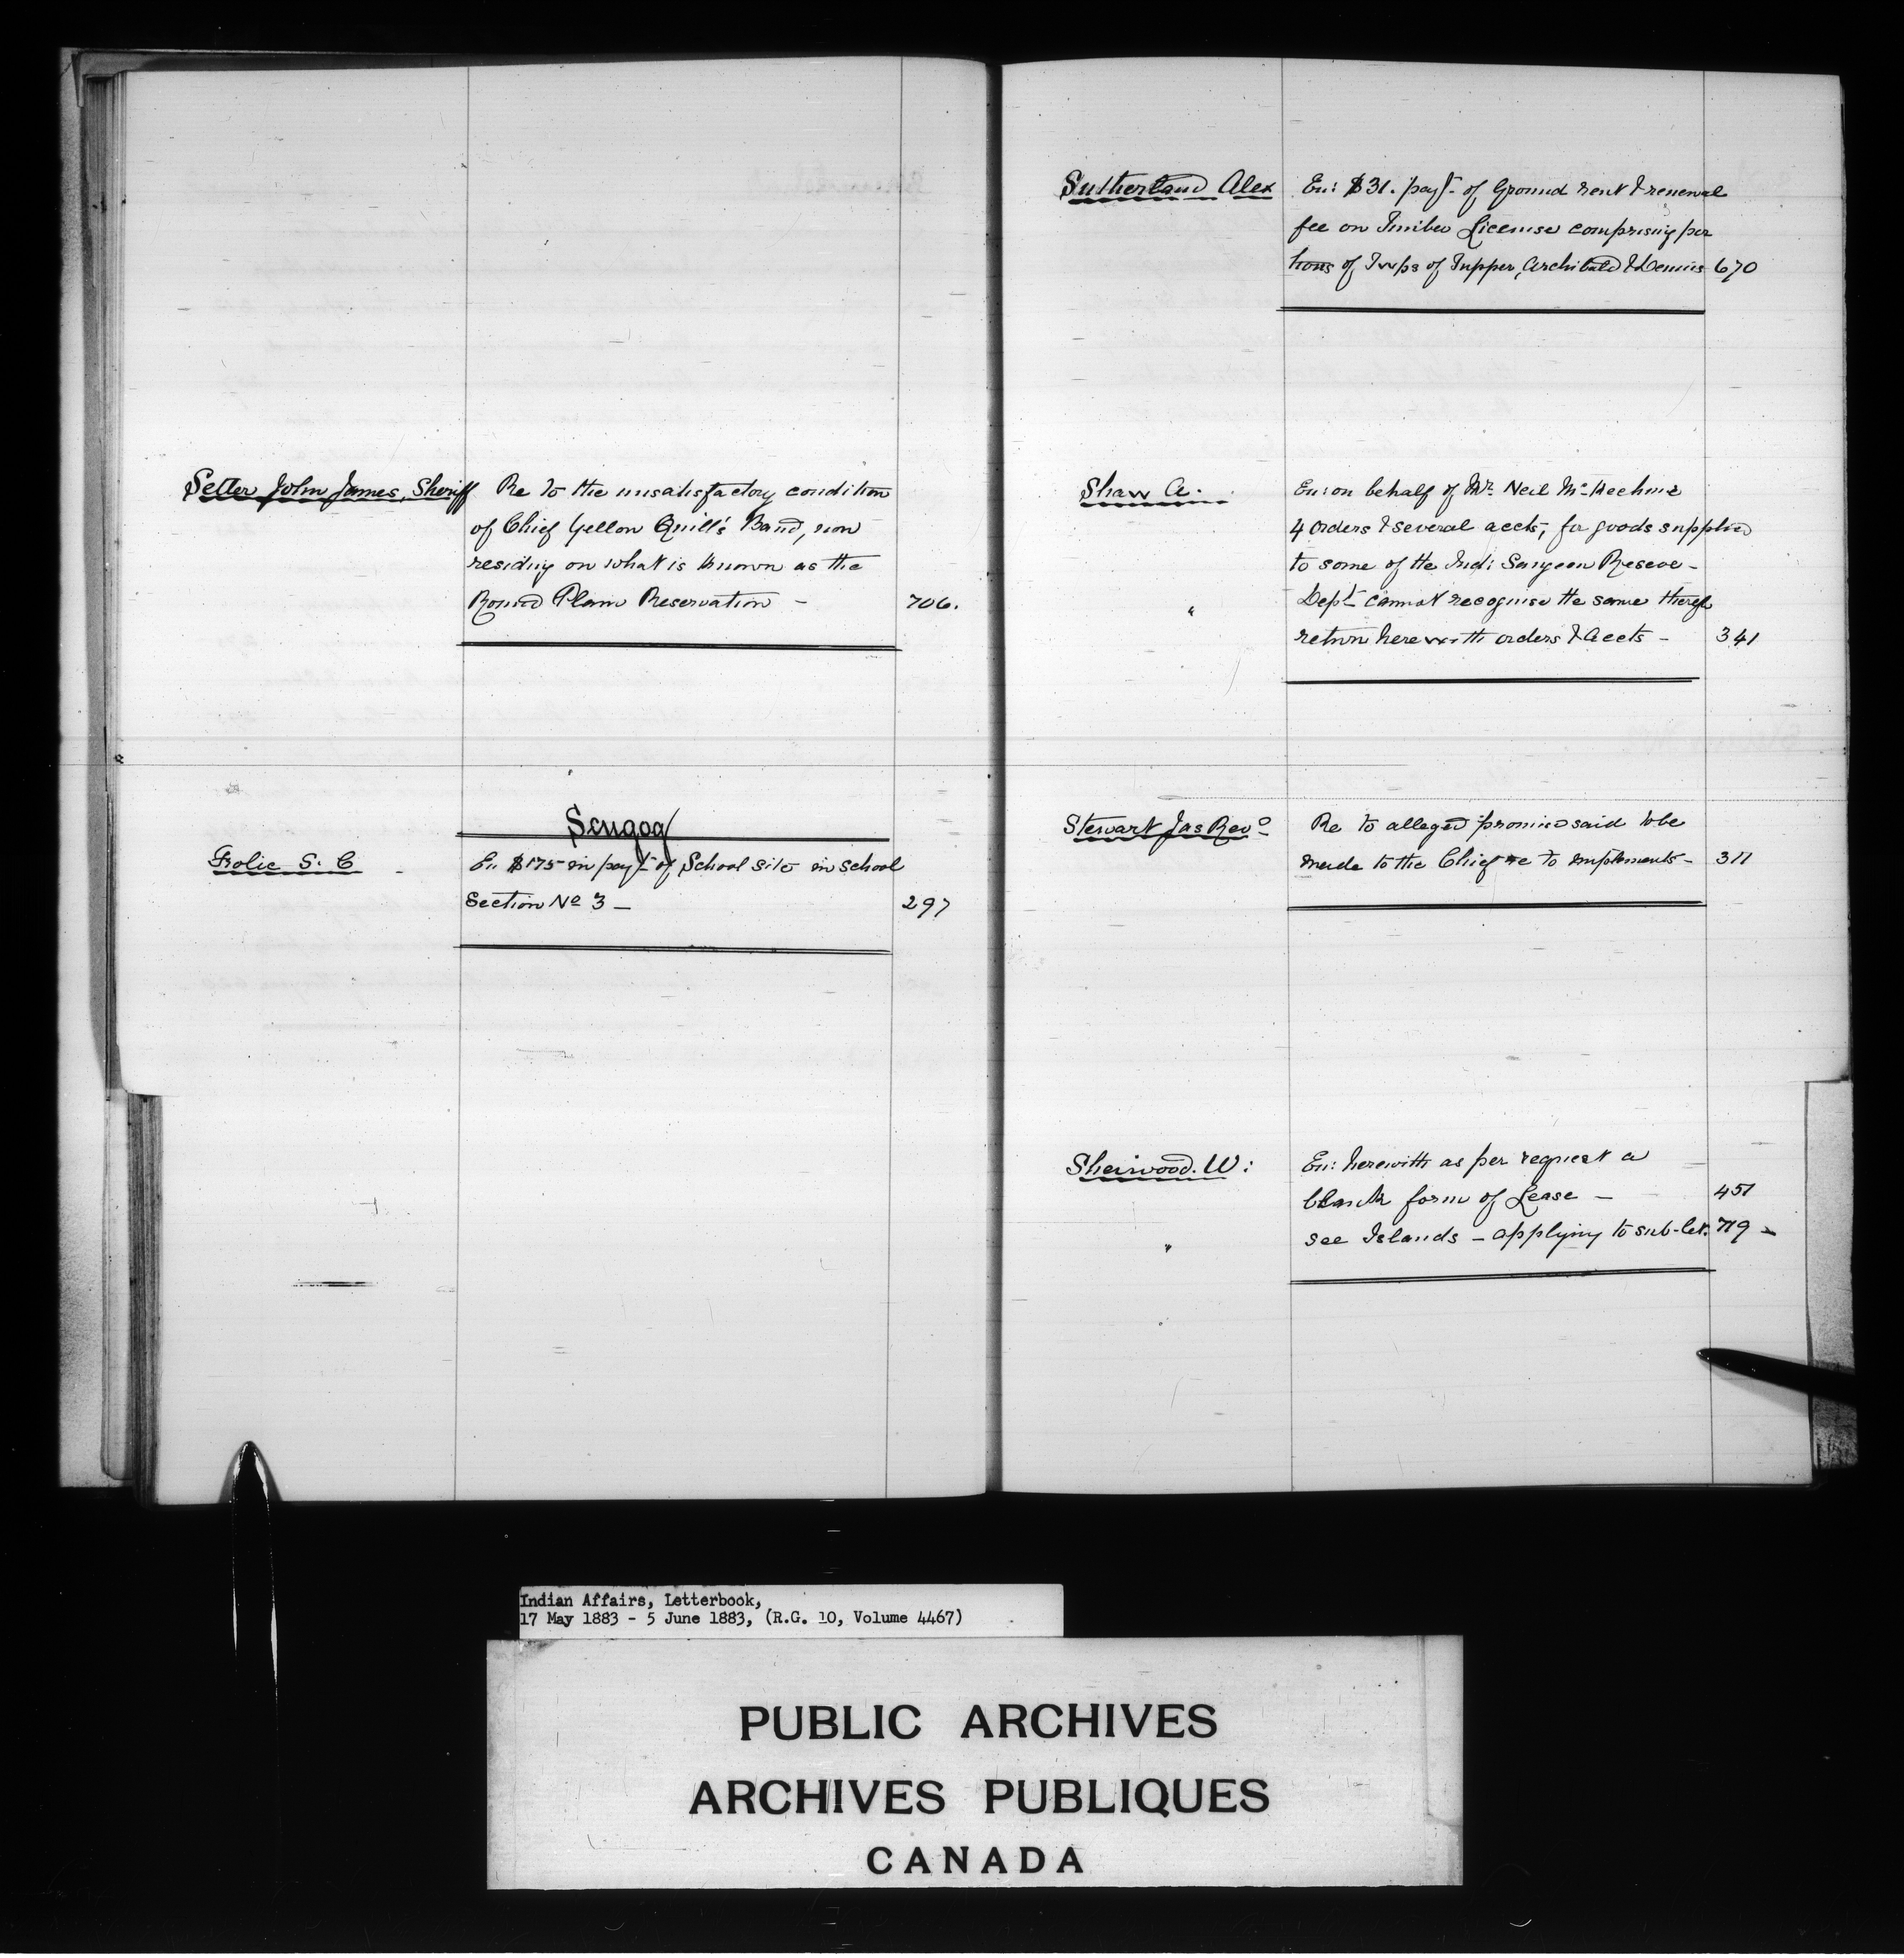 Setter John James, Sheriff Re to the unsatisfactory condition
of Chief Yellow Quill's Band, now
residing on what is known as the
Round Plain Reservation - 706.
Scugog
Frolic S. C En $175 in payt of School site in school
Section No 3 - 297
Sutherland Alex En: $31. payt of Ground rent & renewal
fee on Timber License comprising por
tions of Twps of Tupper, Archibald & Dennis 670
Shaw A. En: on behalf of Mr. Neil Mc Kechnie
4 orders & several accts, for goods supplied
to some of the Ind: Saugeen Reserve -
" Dept cannot recognise the same theref
return herewith orders & accts - 341
Stewart Jas Revd Re to alleged promise said to be
made to the Chief re to implements - 311
Sherwood. W: En: herewith as per request a
blank form of Lease - 451
" see Islands - applying to sub-let. 719 -
Indian Affairs, Letterbook,
17 May 1883 - 5 June 1883, (R.G. 10, Volume 4467)
PUBLIC ARCHIVES
ARCHIVES PUBLIQUES
CANADA